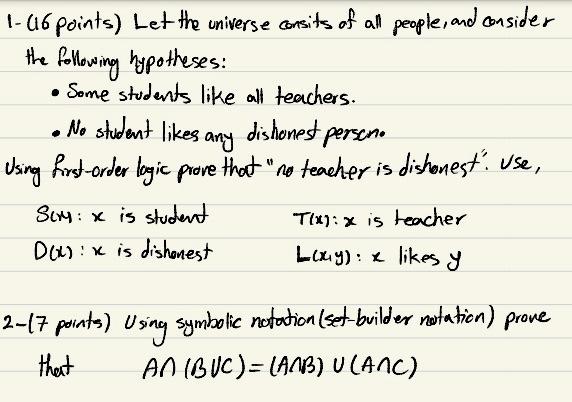 1- (16 points) Let the universe consits of all people, and consider
the following hypotheses:
• Some students like all teachers.
• No student likes any dishonest person.
Using first-order logic prove that "no teacher is dishonest". Use,
S(x): x is student T(x): x is teacher
D(x): x is dishonest L(x,y): x likes y
2-(7 points) Using symbolic notation (set-builder notation) prove
that A∩(B∪C)=(A∩B)∪(A∩C)